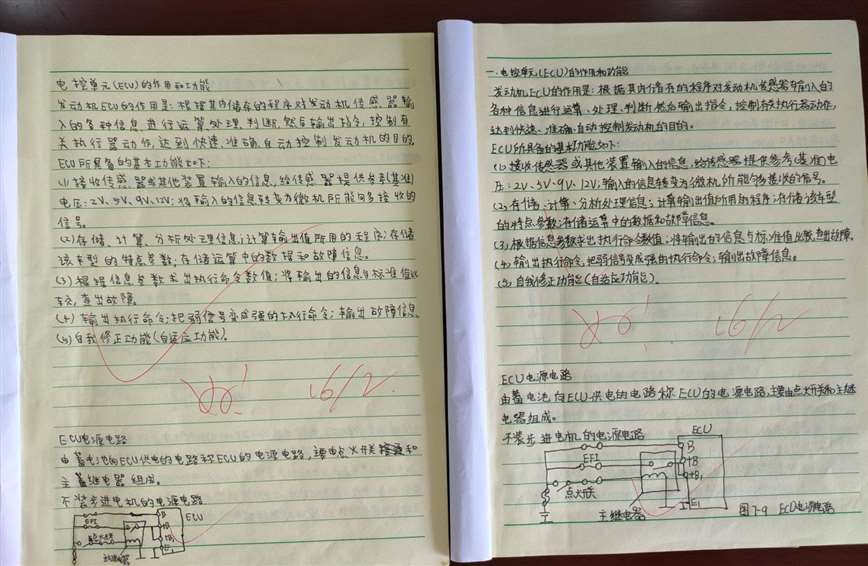 电控单元(ECU)的作用和功能
发动机ECU的作用是:根据其内储存的程序对发动机传感器输
入的各种信息进行运算、处理、判断,然后输出指令,控制有
关执行器动作,达到快速、准确、自动控制发动机的目的。
ECU所具备的基本功能如下:
(1)接收传感器或其他装置输入的信息,给传感器提供参考(基准)
电压:2V、5V、9V、12V;将输入的信息转变为微机所能够接收的
信号。
(2)存储、计算、分析处理信息;计算输出值所用的程序;存储
该车型的特点参数,存储运算中的数据和故障信息。
(3)根据信息参数求出执行命令数值;将输出的信息与标准值比
较,查出故障。
(4)输出执行命令;把弱信号变成强的执行命令;输出故障信息
(5)自我修正功能(自适应功能)。
16/2
ECU电源电路
由蓄电池向ECU供电的电路称ECU的电源电路,主要由点火开关和
主继电器组成。
不装步进电机的电源电路
EFI
点火开关
主继电器
B
+B
+B1
E1
ECU
一.电控单元(ECU)的作用和功能
发动机ECU的作用是:根据其内储存的程序对发动机传感器输入的
各种信息进行运算、处理、判断,然后输出指令,控制有关执行器动作,
达到快速、准确、自动控制发动机的目的。
ECU所具备的基本功能如下:
(1)接收传感器或其他装置输入的信息,给传感器提供参考(基准)电
压:2V、5V、9V、12V;输入的信息转变为微机所能够接收的信号。
(2)存储、计算、分析处理信息;计算输出值所用的程序;存储该车型
的特点参数;存储运算中的数据和故障信息。
(3)根据信息参数求出执行命令数值;将输出的信息与标准值比较,查出故障。
(4)输出执行命令,把弱信号变成强的执行命令;输出故障信息。
(5)自我修正功能(自适应功能)。
16/2
ECU电源电路
由蓄电池向ECU供电的电路称ECU的电源电路,主要由点火开关和主继
电器组成。
不装步进电机的电源电路
EFI
点火开关
主继电器
ECU
B
+B
+B1
E1
图7-9 ECU电源电路